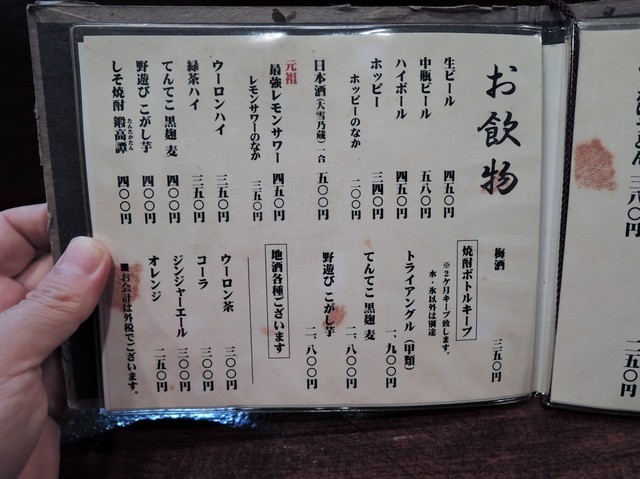 お飲物
生ビール 四五〇円
中瓶ビール 五八〇円
ハイボール 四五〇円
ホッピー 三四〇円
ホッピーのなか 二〇〇円
日本酒(大雪乃蔵)一合 五〇〇円
元祖
最強レモンサワー 四五〇円
レモンサワーのなか 三五〇円
ウーロンハイ 三五〇円
緑茶ハイ 三五〇円
てんてこ 黒麹 麦 四〇〇円
野遊び こがし芋 四〇〇円
しそ焼酎 鍛高譚 四〇〇円
たんたかたん
梅酒 三五〇円
焼酎ボトルキープ
※2ケ月キープ致します。
水・氷以外は別途
トライアングル(甲類) 一、九〇〇円
てんてこ 黒麹 麦 二、八〇〇円
野遊び こがし芋 二、八〇〇円
地酒各種ございます
ウーロン茶 三〇〇円
コーラ 三〇〇円
ジンジャーエール 三〇〇円
オレンジ 二五〇円
■お会計は外税でございます。